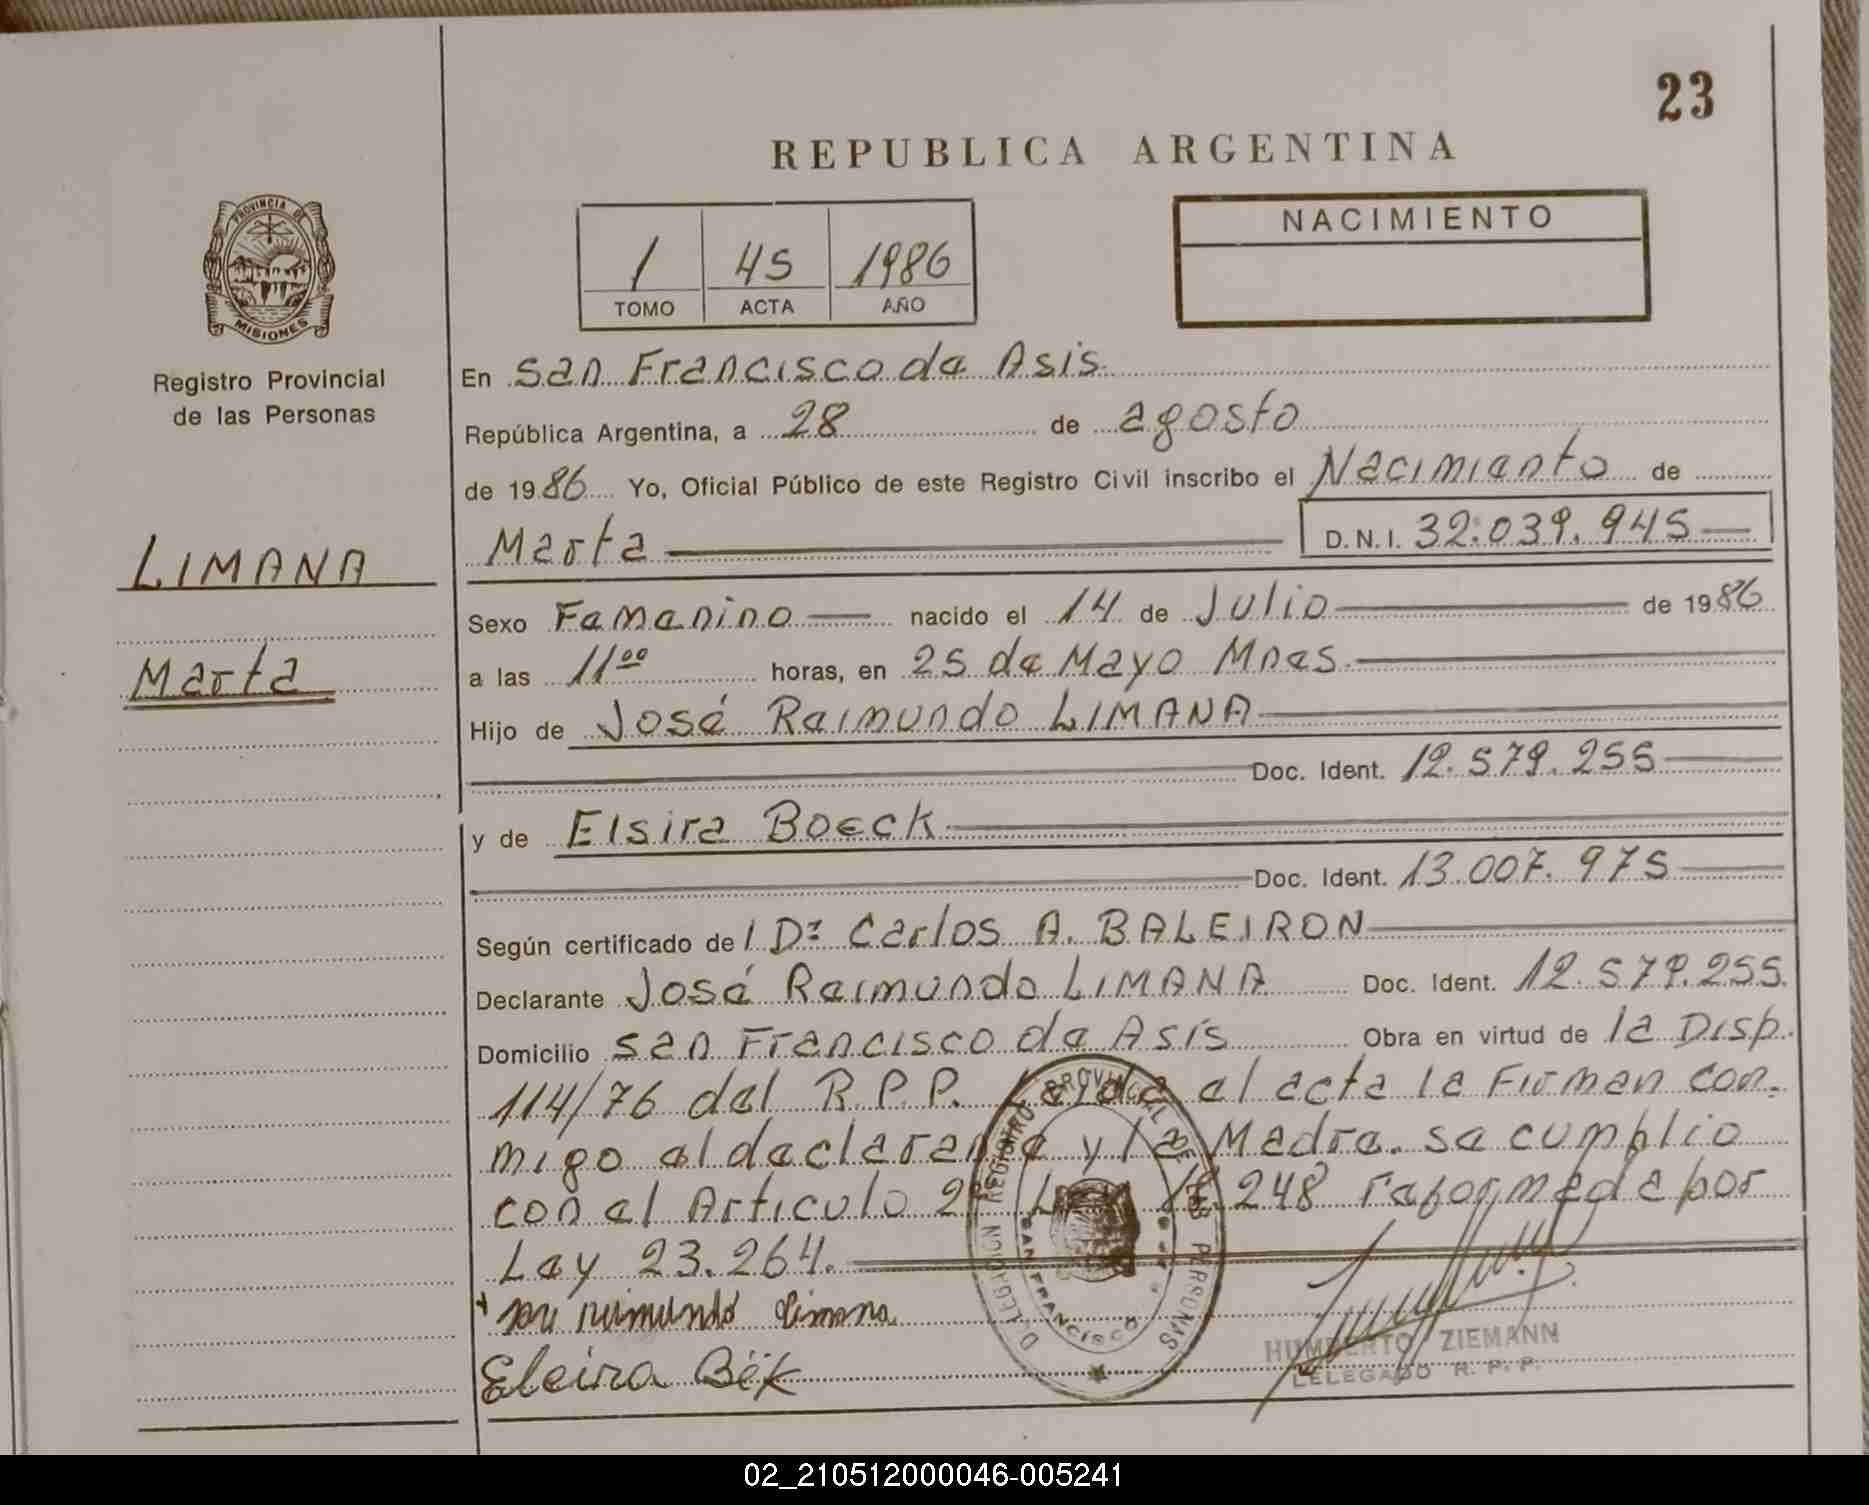 23
REPUBLICA ARGENTINA
PROVINCIA DE
MISIONES
Registro Provincial
de las Personas
1 45 1986
TOMO ACTA AÑO
NACIMIENTO
En San Francisco de Asis
República Argentina, a 28 de agosto
de 1986 Yo, Oficial Público de este Registro Civil inscribo el Nacimiento de
LIMANA
Marta
Marta D.N.I. 32.039.945
Sexo Femenino nacido el 14 de Julio de 1986
a las 11⁰⁰ horas, en 25 de Mayo Mnes.
Hijo de José Raimundo LIMANA
Doc. Ident. 12.579.255
y de Elsira Boeck
Doc. Ident. 13.007.975
Según certificado de l Dr Carlos A. BALEIRON
Declarante José Raimundo LIMANA Doc. Ident. 12.579.255.
Domicilio San Francisco de Asís Obra en virtud de la Disp.
114/76 del R.P.P. Leida el acta la Firman con-
migo el declarante y la Madre. se cumplio
con el Articulo 2º Ley 18.248 reformada por
Ley 23.264.
raimundo Limana
Eleira Bëk
DELEGACION REGISTRO PROVINCIAL DE LAS PERSONAS
SAN FRANCISCO
HUMBERTO ZIEMANN
DELEGADO R. P. P.
02_210512000046-005241